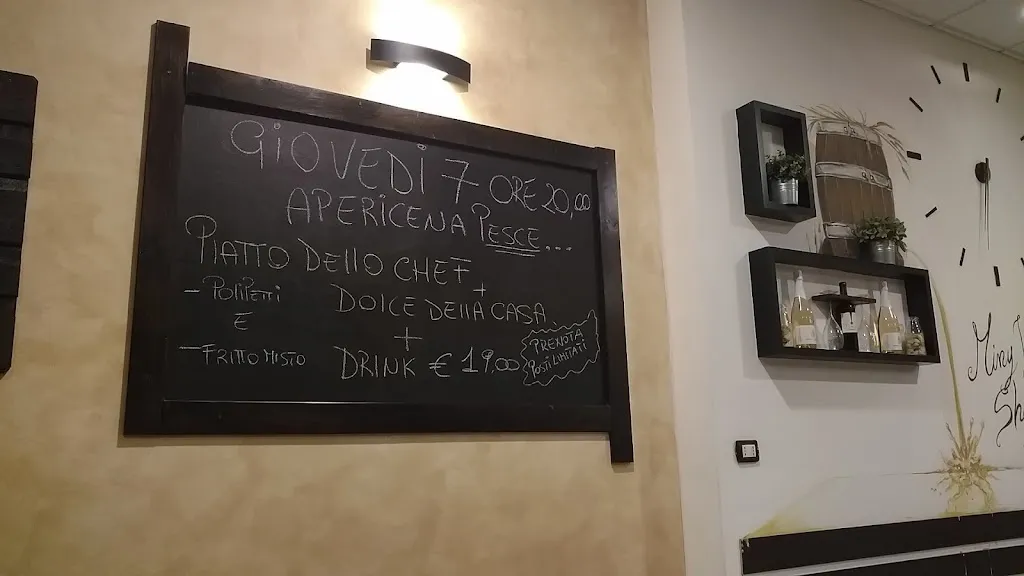 GIOVEDÌ 7 ORE 20,00
APERICENA PESCE...
PIATTO DELLO CHEF
+
- POLIPETTI
E
- FRITTO MISTO
DOLCE DELLA CASA
+
DRINK € 19,00
PRENOTA
POSTI LIMITATI
Miny
Sh